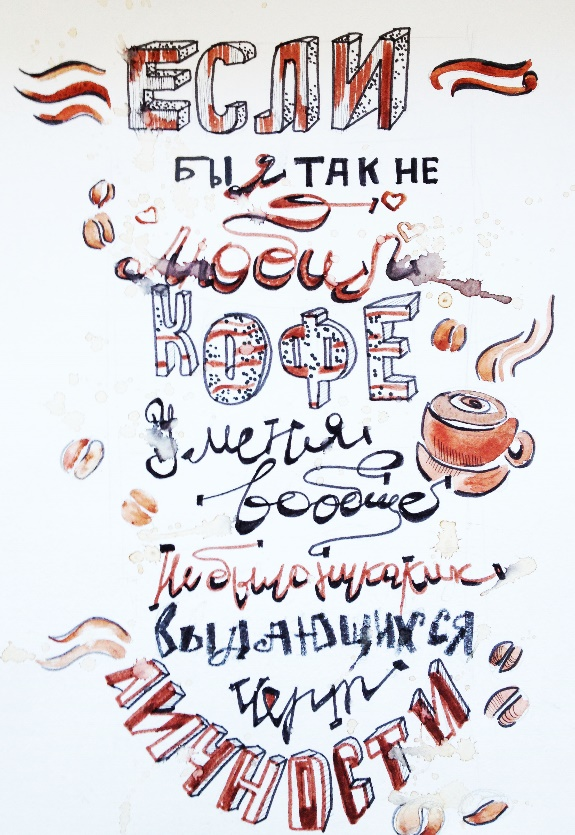 ЕСЛИ
БЫ Я ТАК НЕ
любил
КОФЕ
У меня
вообще
Не было никаких
ВЫДАЮЩИХСЯ
черт
ЛИЧНОСТИ